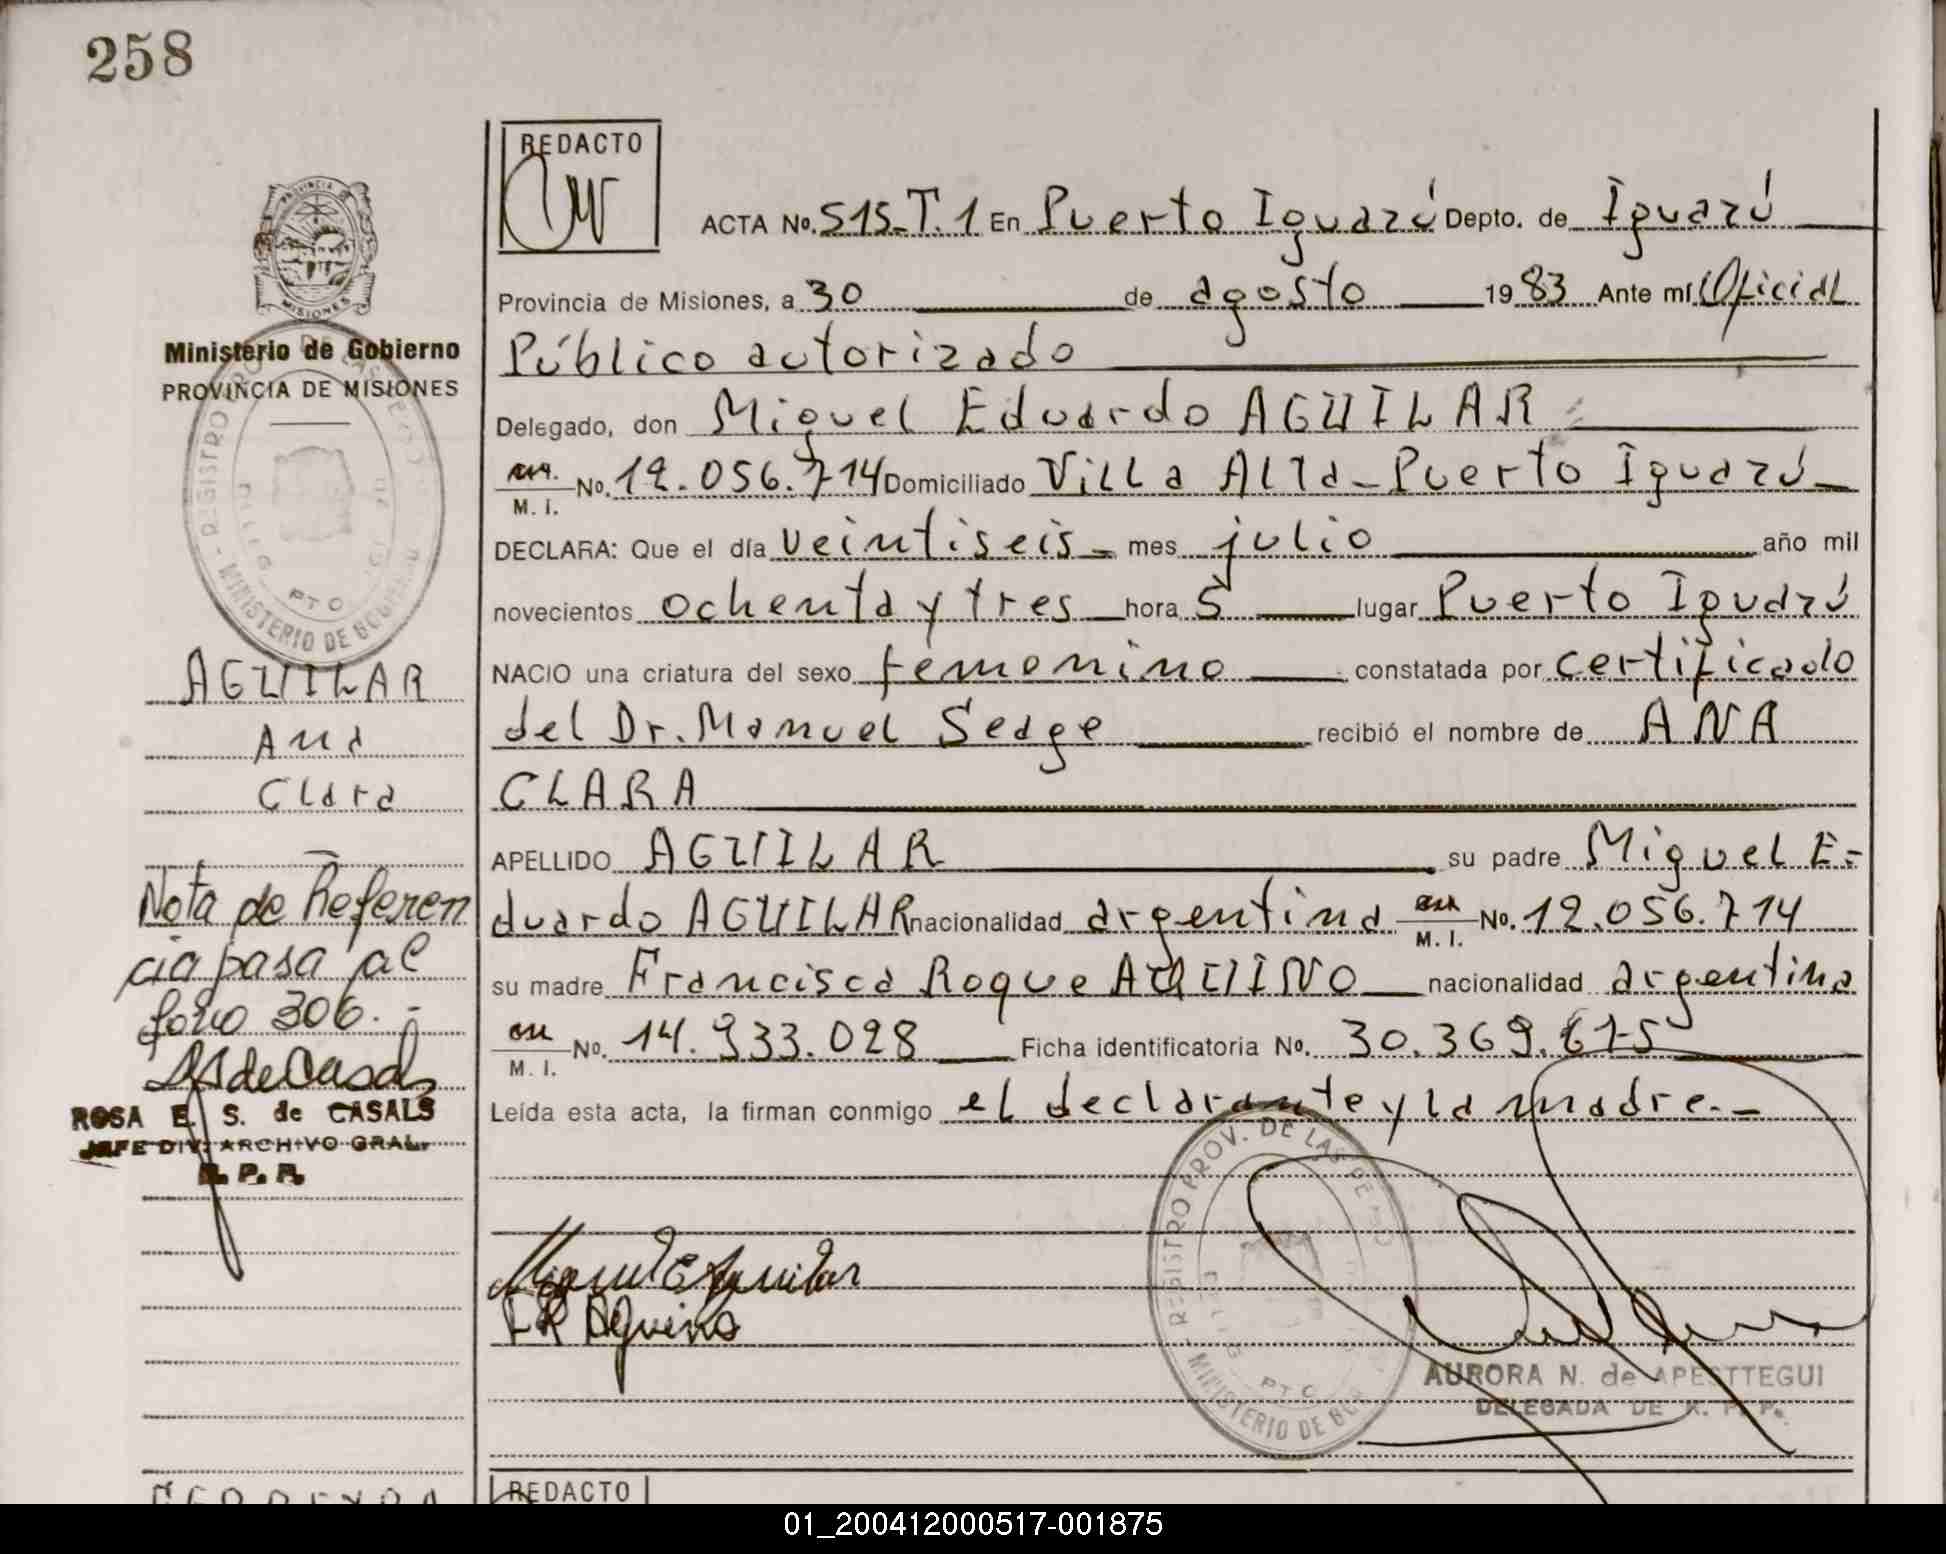 258
REDACTO
ACTA No. 515-T.1 En Puerto Iguazú Depto. de Iguazú
Provincia de Misiones, a 30 de agosto 1983 Ante mí Oficial
Público autorizado
Delegado, don Miguel Eduardo AGUILAR
M. I. No. 12.056.714 Domiciliado Villa Alta - Puerto Iguazú
DECLARA: Que el día veintiseis mes julio año mil
novecientos ochenta y tres hora 5 lugar Puerto Iguazú
NACIO una criatura del sexo femenino constatada por certificado
del Dr. Manuel Seage recibió el nombre de ANA
CLARA
APELLIDO AGUILAR su padre Miguel E-
duardo AGUILAR nacionalidad argentina M. I. No. 12.056.714
su madre Francisca Roque AQUINO nacionalidad argentina
M. I. No. 14.933.028 Ficha identificatoria No. 30.369.675
Leída esta acta, la firman conmigo el declarante y la madre.-
Miguel E Aguilar
F R Aquino
AURORA N. de APESTTEGUI
DELEGADA DE R. P. P.
REGISTRO PROV. DE LAS PERS
MINISTERIO DE GOB
PROVINCIA DE
MISIONES
Ministerio de Gobierno
PROVINCIA DE MISIONES
REGISTRO PRO
MINISTERIO DE GOBIERNO
AGUILAR
Ana
Clara
Nota de Referen
cia pasa al
folio 306.-
RS de Casals
ROSA E. S. de CASALS
JEFE DIV. ARCHIVO GRAL.
R. P. P.
REDACTO
01_200412000517-001875